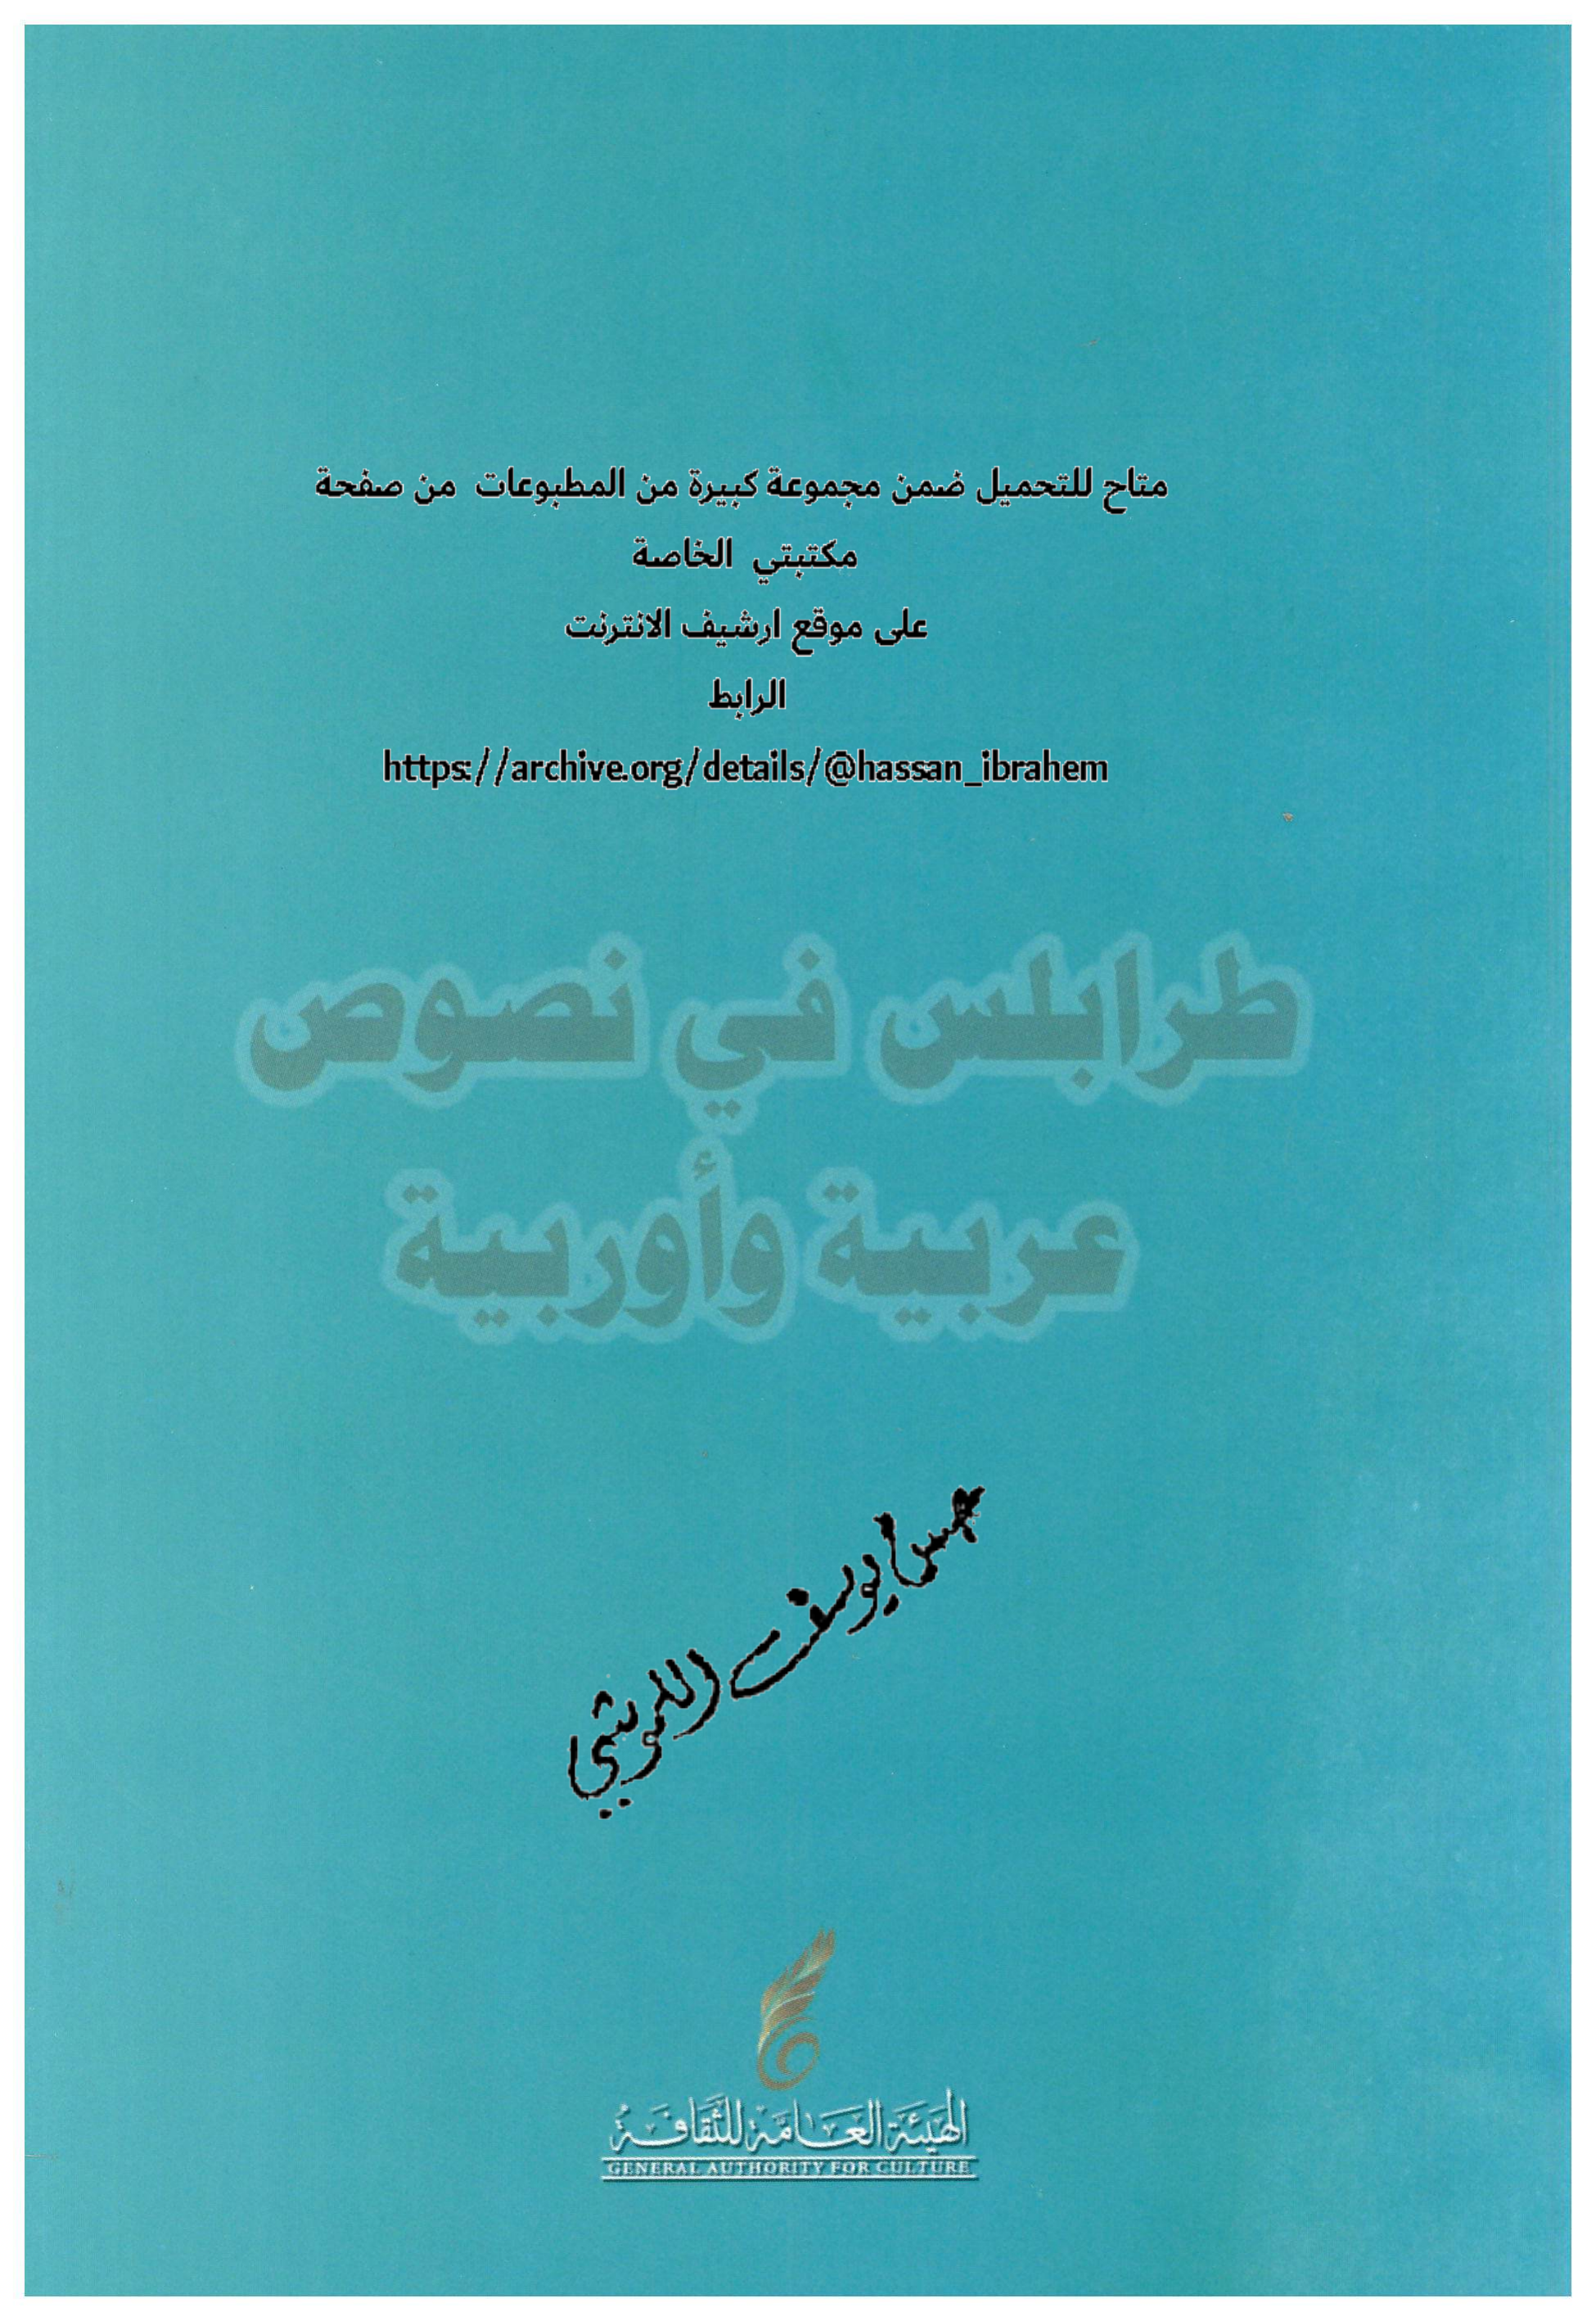 متاح للتحميل ضمن مجموعة كبيرة من المطبوعات من صفحة
مكتبتي الخاصة
على موقع ارشيف الانترنت
الرابط
https://archive.org/details/@hassan_ibrahem
طرابلس في نصوص
عربية وأوربية
يوسف
الهيئة العامة للثقافة
GENERAL AUTHORITY FOR CULTURE